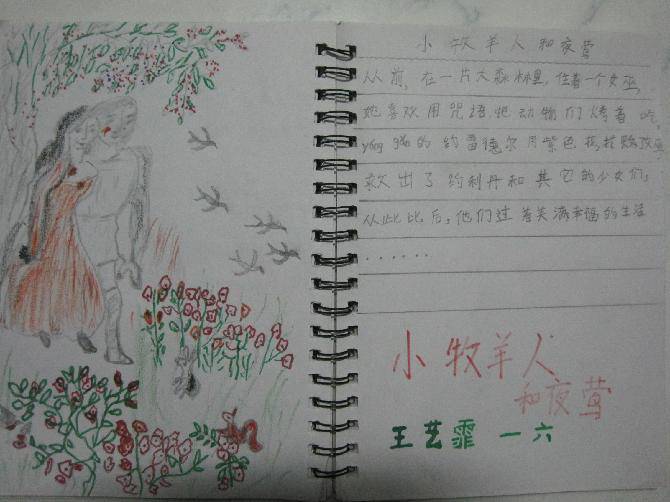 小牧羊人和夜莺
从前,在一片大森林里,住着一个女巫,
她喜欢用咒语把动物们烤着吃
yǒng gǎn的约雷德尔用紫色
救出了约利丹和其它的少女们,
从此比后,他们过着美满幸福的生活
......
小牧羊人
和夜莺
王艺霏 一六